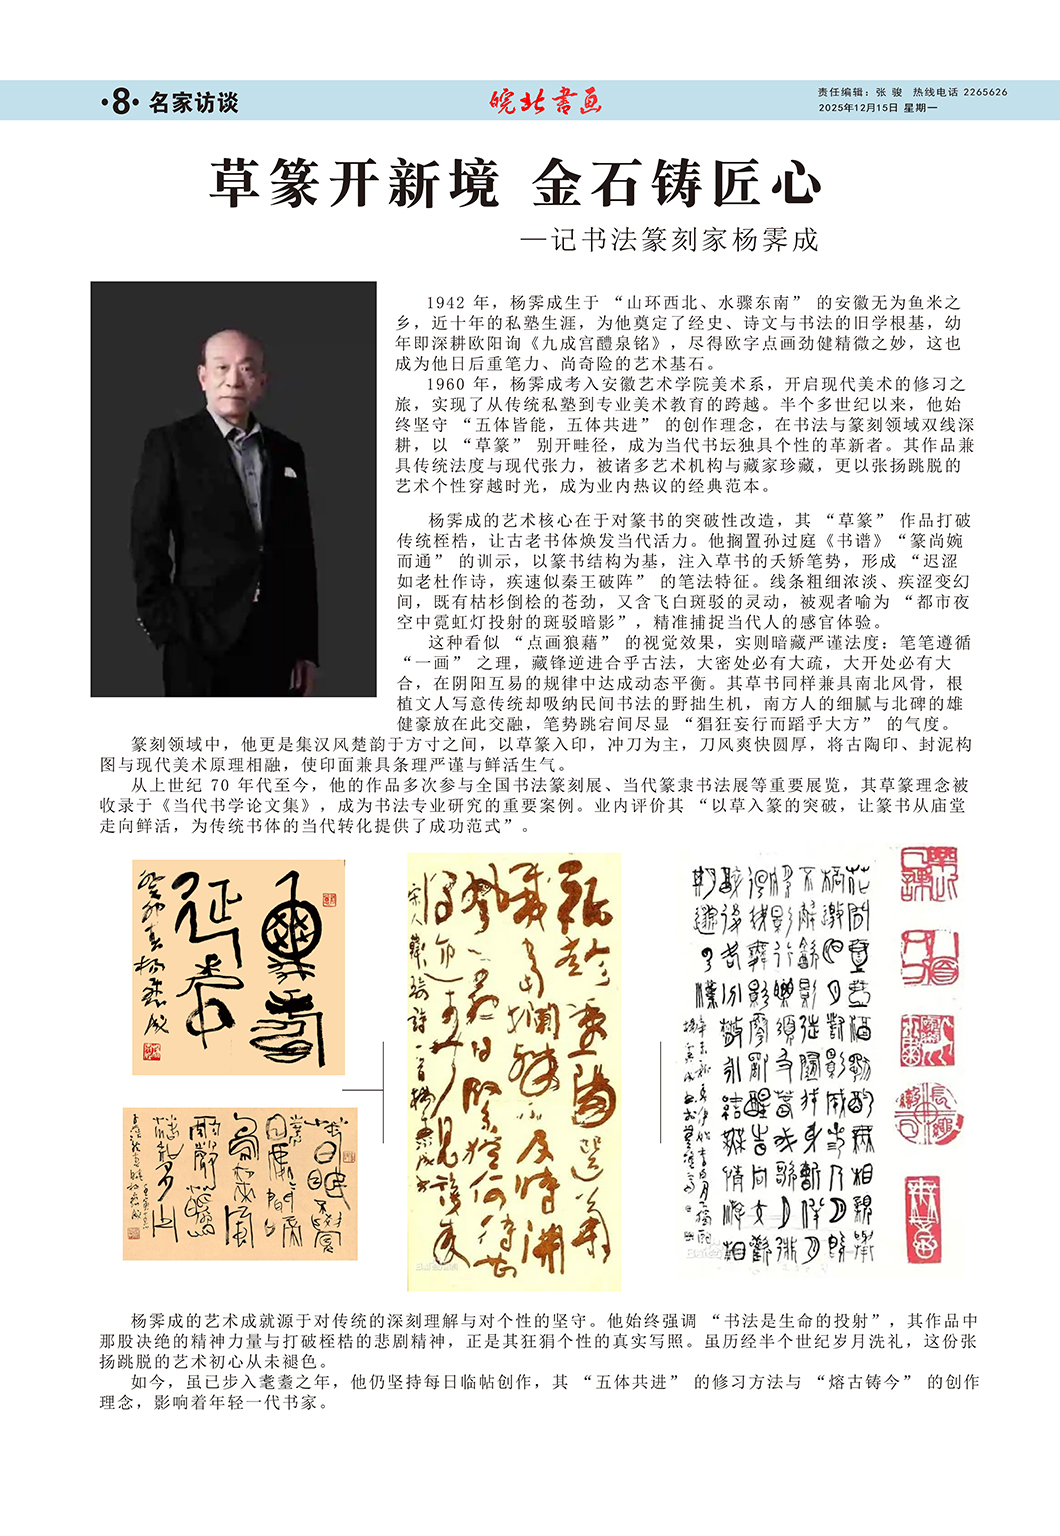 ·8· 名家访谈
皖北书画
责任编辑：张 骏 热线电话 2265626
2025年12月15日 星期一
草篆开新境 金石铸匠心
—记书法篆刻家杨霁成
1942 年，杨霁成生于 “山环西北、水骤东南” 的安徽无为鱼米之
乡，近十年的私塾生涯，为他奠定了经史、诗文与书法的旧学根基，幼
年即深耕欧阳询《九成宫醴泉铭》，尽得欧字点画劲健精微之妙，这也
成为他日后重笔力、尚奇险的艺术基石。
1960 年，杨霁成考入安徽艺术学院美术系，开启现代美术的修习之
旅，实现了从传统私塾到专业美术教育的跨越。半个多世纪以来，他始
终坚守 “五体皆能，五体共进” 的创作理念，在书法与篆刻领域双线深
耕，以 “草篆” 别开畦径，成为当代书坛独具个性的革新者。其作品兼
具传统法度与现代张力，被诸多艺术机构与藏家珍藏，更以张扬跳脱的
艺术个性穿越时光，成为业内热议的经典范本。
杨霁成的艺术核心在于对篆书的突破性改造，其 “草篆” 作品打破
传统桎梏，让古老书体焕发当代活力。他搁置孙过庭《书谱》“篆尚婉
而通” 的训示，以篆书结构为基，注入草书的夭矫笔势，形成 “迟涩
如老杜作诗，疾速似秦王破阵” 的笔法特征。线条粗细浓淡、疾涩变幻
间，既有枯杉倒桧的苍劲，又含飞白斑驳的灵动，被观者喻为 “都市夜
空中霓虹灯投射的斑驳暗影”，精准捕捉当代人的感官体验。
这种看似 “点画狼藉” 的视觉效果，实则暗藏严谨法度：笔笔遵循
“一画” 之理，藏锋逆进合乎古法，大密处必有大疏，大开处必有大
合，在阴阳互易的规律中达成动态平衡。其草书同样兼具南北风骨，根
植文人写意传统却吸纳民间书法的野拙生机，南方人的细腻与北碑的雄
健豪放在此交融，笔势跳宕间尽显 “猖狂妄行而蹈乎大方” 的气度。
篆刻领域中，他更是集汉风楚韵于方寸之间，以草篆入印，冲刀为主，刀风爽快圆厚，将古陶印、封泥构
图与现代美术原理相融，使印面兼具条理严谨与鲜活生气。
从上世纪 70 年代至今，他的作品多次参与全国书法篆刻展、当代篆隶书法展等重要展览，其草篆理念被
收录于《当代书学论文集》，成为书法专业研究的重要案例。业内评价其 “以草入篆的突破，让篆书从庙堂
走向鲜活，为传统书体的当代转化提供了成功范式”。
杨霁成的艺术成就源于对传统的深刻理解与对个性的坚守。他始终强调 “书法是生命的投射”，其作品中
那股决绝的精神力量与打破桎梏的悲剧精神，正是其狂狷个性的真实写照。虽历经半个世纪岁月洗礼，这份张
扬跳脱的艺术初心从未褪色。
如今，虽已步入耄耋之年，他仍坚持每日临帖创作，其 “五体共进” 的修习方法与 “熔古铸今” 的创作
理念，影响着年轻一代书家。